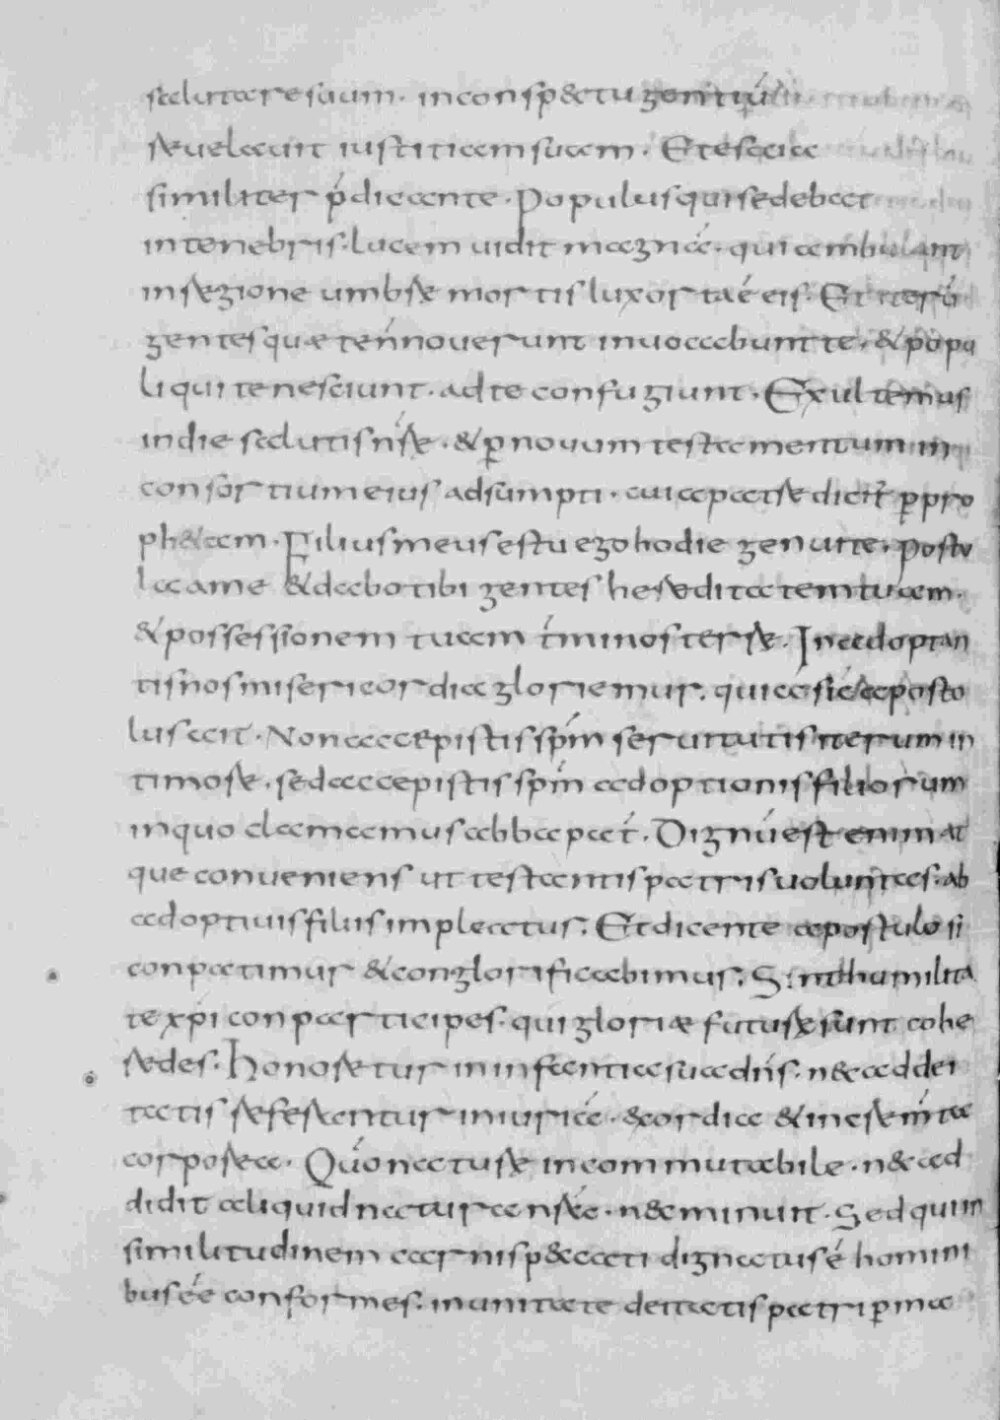 salutare suum. in conspectu gentiū
reuelauit iustitiam suam. Et esaia
similiter p̄dicante. Populus qui sedebat
in tenebris. lucem uidit magnā. qui ambulant
in regione umbre mortis lux orta ē eis. Et iterū
gentes quæ te n̄ nouerunt inuocabunt te. & popu
li qui te nesciunt. ad te confugiunt. Exultemus
in die salutis nr̄e. & ꝑ nouum testamentum in
consortium eius adsumpti. cui a patre dicit̄ ꝑ pro
ph&am. Filius meus es tu ego hodie genui te. Postu
la a me & dabo tibi gentes hereditatem tuam.
& possessionem tuam t̄minos terre. In adoptan
tis nos misericordia gloriemur. quia sic̄ apostolo
lus ait. Non accepistis sp̄m seruitutis iterum in
timore. sed accepistis sp̄m adoptionis filiorum
in quo clamamus abba pat̄. Dignū est enim at
que conueniens ut testantis patris uoluntas. ab
adoptiuis filiis impleatur. Et dicente apostolo si
conpatimur & conglorificabimur. Sint humilita
te xp̄i conparticipes. qui gloriæ future sunt cohe
redes. Honoretur in infantia sua dn̄s. n& ad dei
tatis referantur iniuriā. & ordia & incrementa
corporea. Qūo nature incommutabile. n& ad
didit aliquid natura nr̄a. n& minuit. Sed qui in
similitudinem carnis p&cati dignatus ē homini
bus eē conformes. in unitate deitatis patri ꝑma